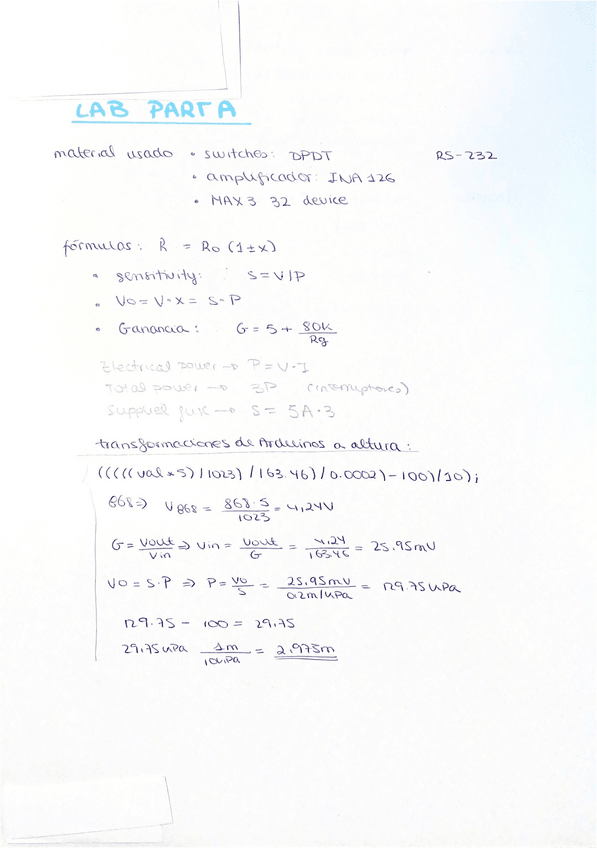 LAB PART A
material usado • switches: DPDT RS-232
• amplificador: INA 126
• MAX3 32 device
fórmulas: R = Ro (1±x)
• sensitivity: S=V/P
• Vo= V·x = S·P
• Ganancia: G = 5 + 80K/Rg
Electrical power → P=V·I
Total power → 3P (interruptores)
→ S= 5A·3
transformaciones de Arduinos a altura:
(((((val*5)/1023)/163.46)/0.0002)-100)/10);
868⇒ V868 = 868·5/1023 = 4,24V
G= Vout/Vin ⇒ Vin = Vout/G = 4,24/163.46 = 25.95mV
VO = S·P ⇒ P= VO/S = 25,95mV/0.2m/uPa = 129.75uPa
129.75 - 100 = 29,75
29,75uPa 1m/10uPa = 2,975m